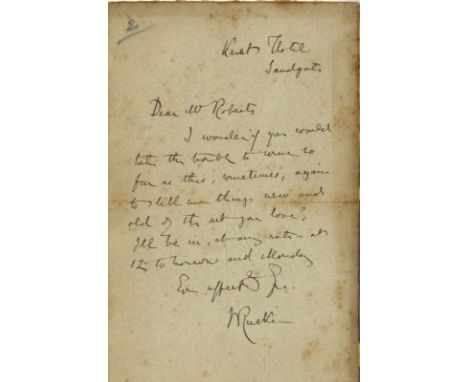 2
Kent's Hotel
Sandgate
Dear Mr Roberts
I wonder if you would
take the trouble to come so
far as this, sometimes, again
to tell me things new and
old of the art you love?
I'll be in, at any rate at
12 tomorrow and Monday
Ever affectly Yrs.
JRuskin